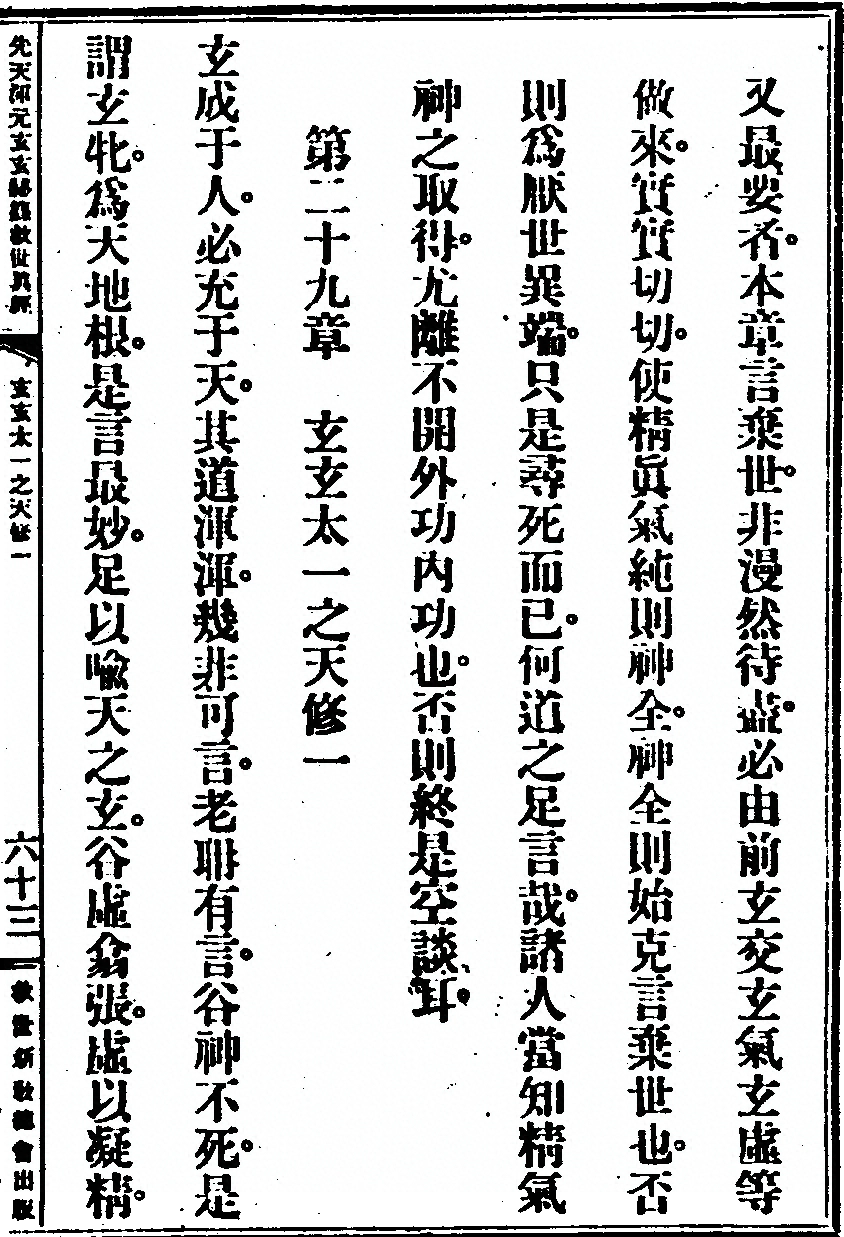 又最要者。本章言棄世。非漫然待盡。必由前玄交玄氣玄虛等
做來。實實切切。使精眞氣純則神全。神全則始克言棄世也。否
則爲厭世異端。只是尋死而已。何道之足言哉。諸人當知精氣
神之取得。尤離不開外功內功也。否則終是空談耳。
第二十九章　玄玄太一之天修一
玄成于人。必充于天。其道渾渾。幾非可言。老聃有言。谷神不死。是
謂玄牝。爲天地根。是言最妙。足以喩天之玄。谷虛翕張。虛以凝精。
先天渾元玄玄祕籙救世眞經
玄玄太一之天修一
六十三
救世新敎總會出版